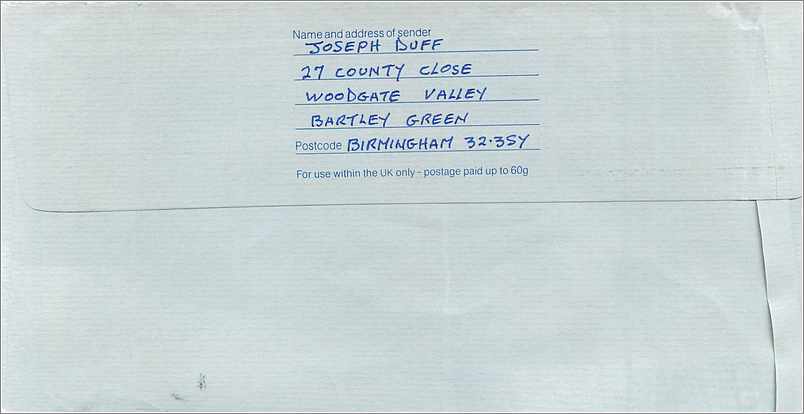 Name and address of sender
JOSEPH DUFF
27 COUNTY CLOSE
WOODGATE VALLEY
BARTLEY GREEN
Postcode BIRMINGHAM 32.3SY
For use within the UK only - postage paid up to 60g